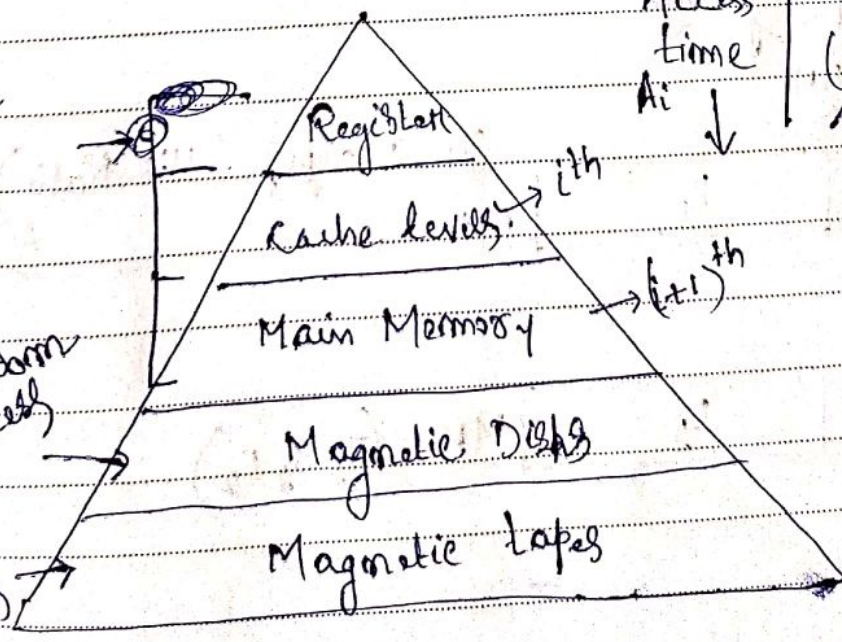 Access
time
Ai
Register
Cache levels
ith
Main Memory
(i+1)th
Magnetic Disks
Magnetic tapes